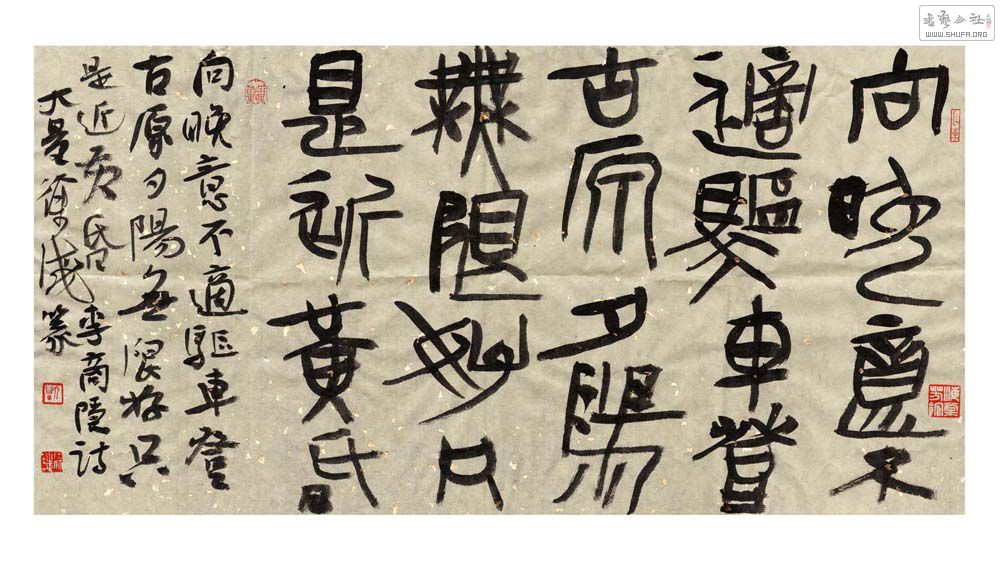 向晚意不
適驅車登
古原夕陽
無限好只
是近黄昏
向晚意不適驅車登
古原夕陽無限好只
是近黄昏李商隱詩
大徐篆
書藝公社
WWW.SHUFA.ORG